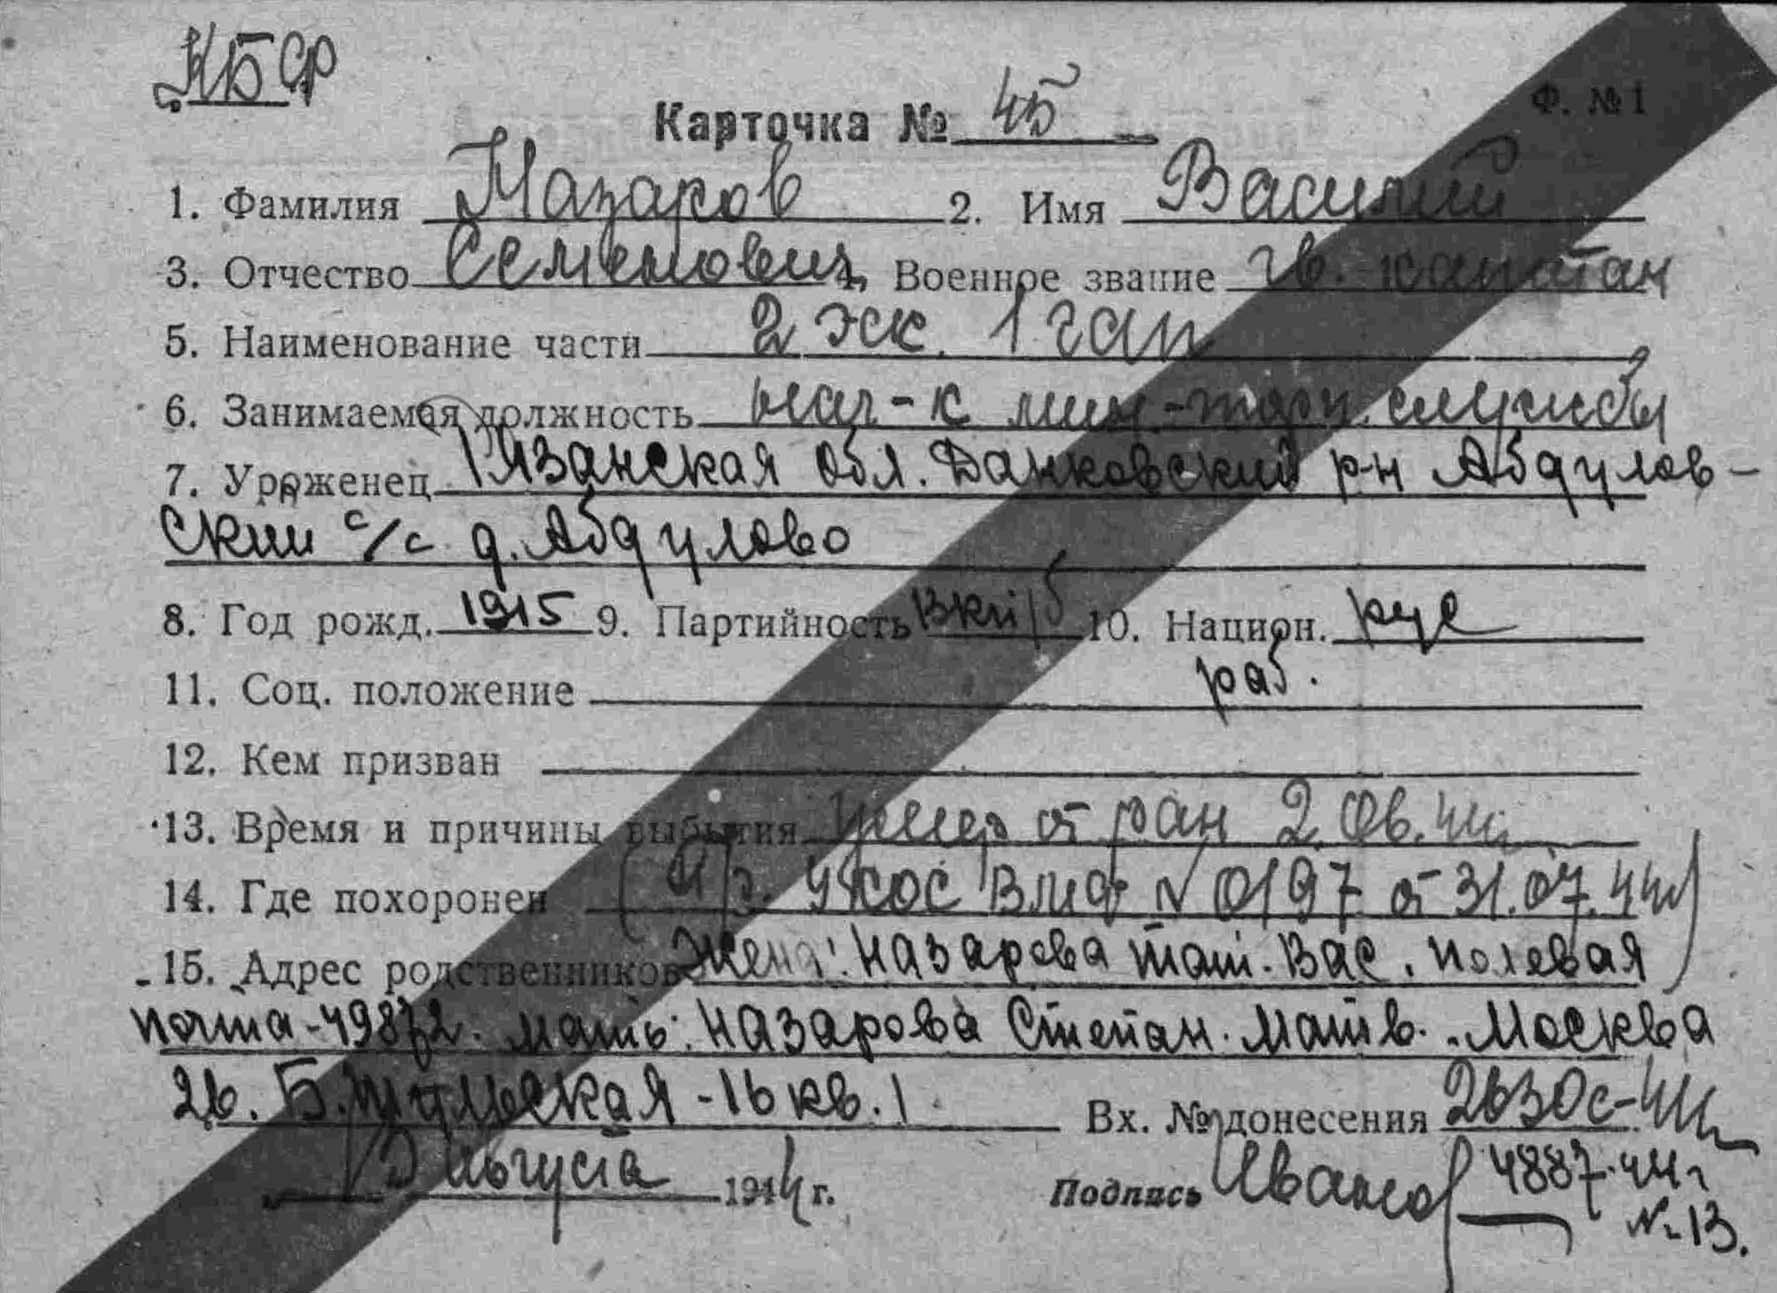 КБФ
Карточка № 45
Ф. № 1
1. Фамилия Назаров 2. Имя Василий
3. Отчество Семенович 4. Военное звание гв. капитан
5. Наименование части 2 жк. 1 гап
6. Занимаемая должность нач-к мин-торп. службы
7. Уроженец Рязанская обл. Данковский р-н Абдулов-
ский с/с д. Абдулово
8. Год рожд. 1915 9. Партийность ВКП/б 10. Национ. рус
11. Соц. положение раб.
12. Кем призван
13. Время и причины выбытия умер от ран 2.08.44г.
14. Где похоронен (Пр. УКОС ВМФ № 0197 от 31.07.44г)
15. Адрес родственников Жена: Назарова Тат. Вас. Полевая
почта-49872. мать: Назарова Степан. Матв. Москва
26. Б. -16 кв. 1 Вх. № донесения 2630с-44г
августа 1944 г. Подпись Иванов 4887-44г
№ 13.